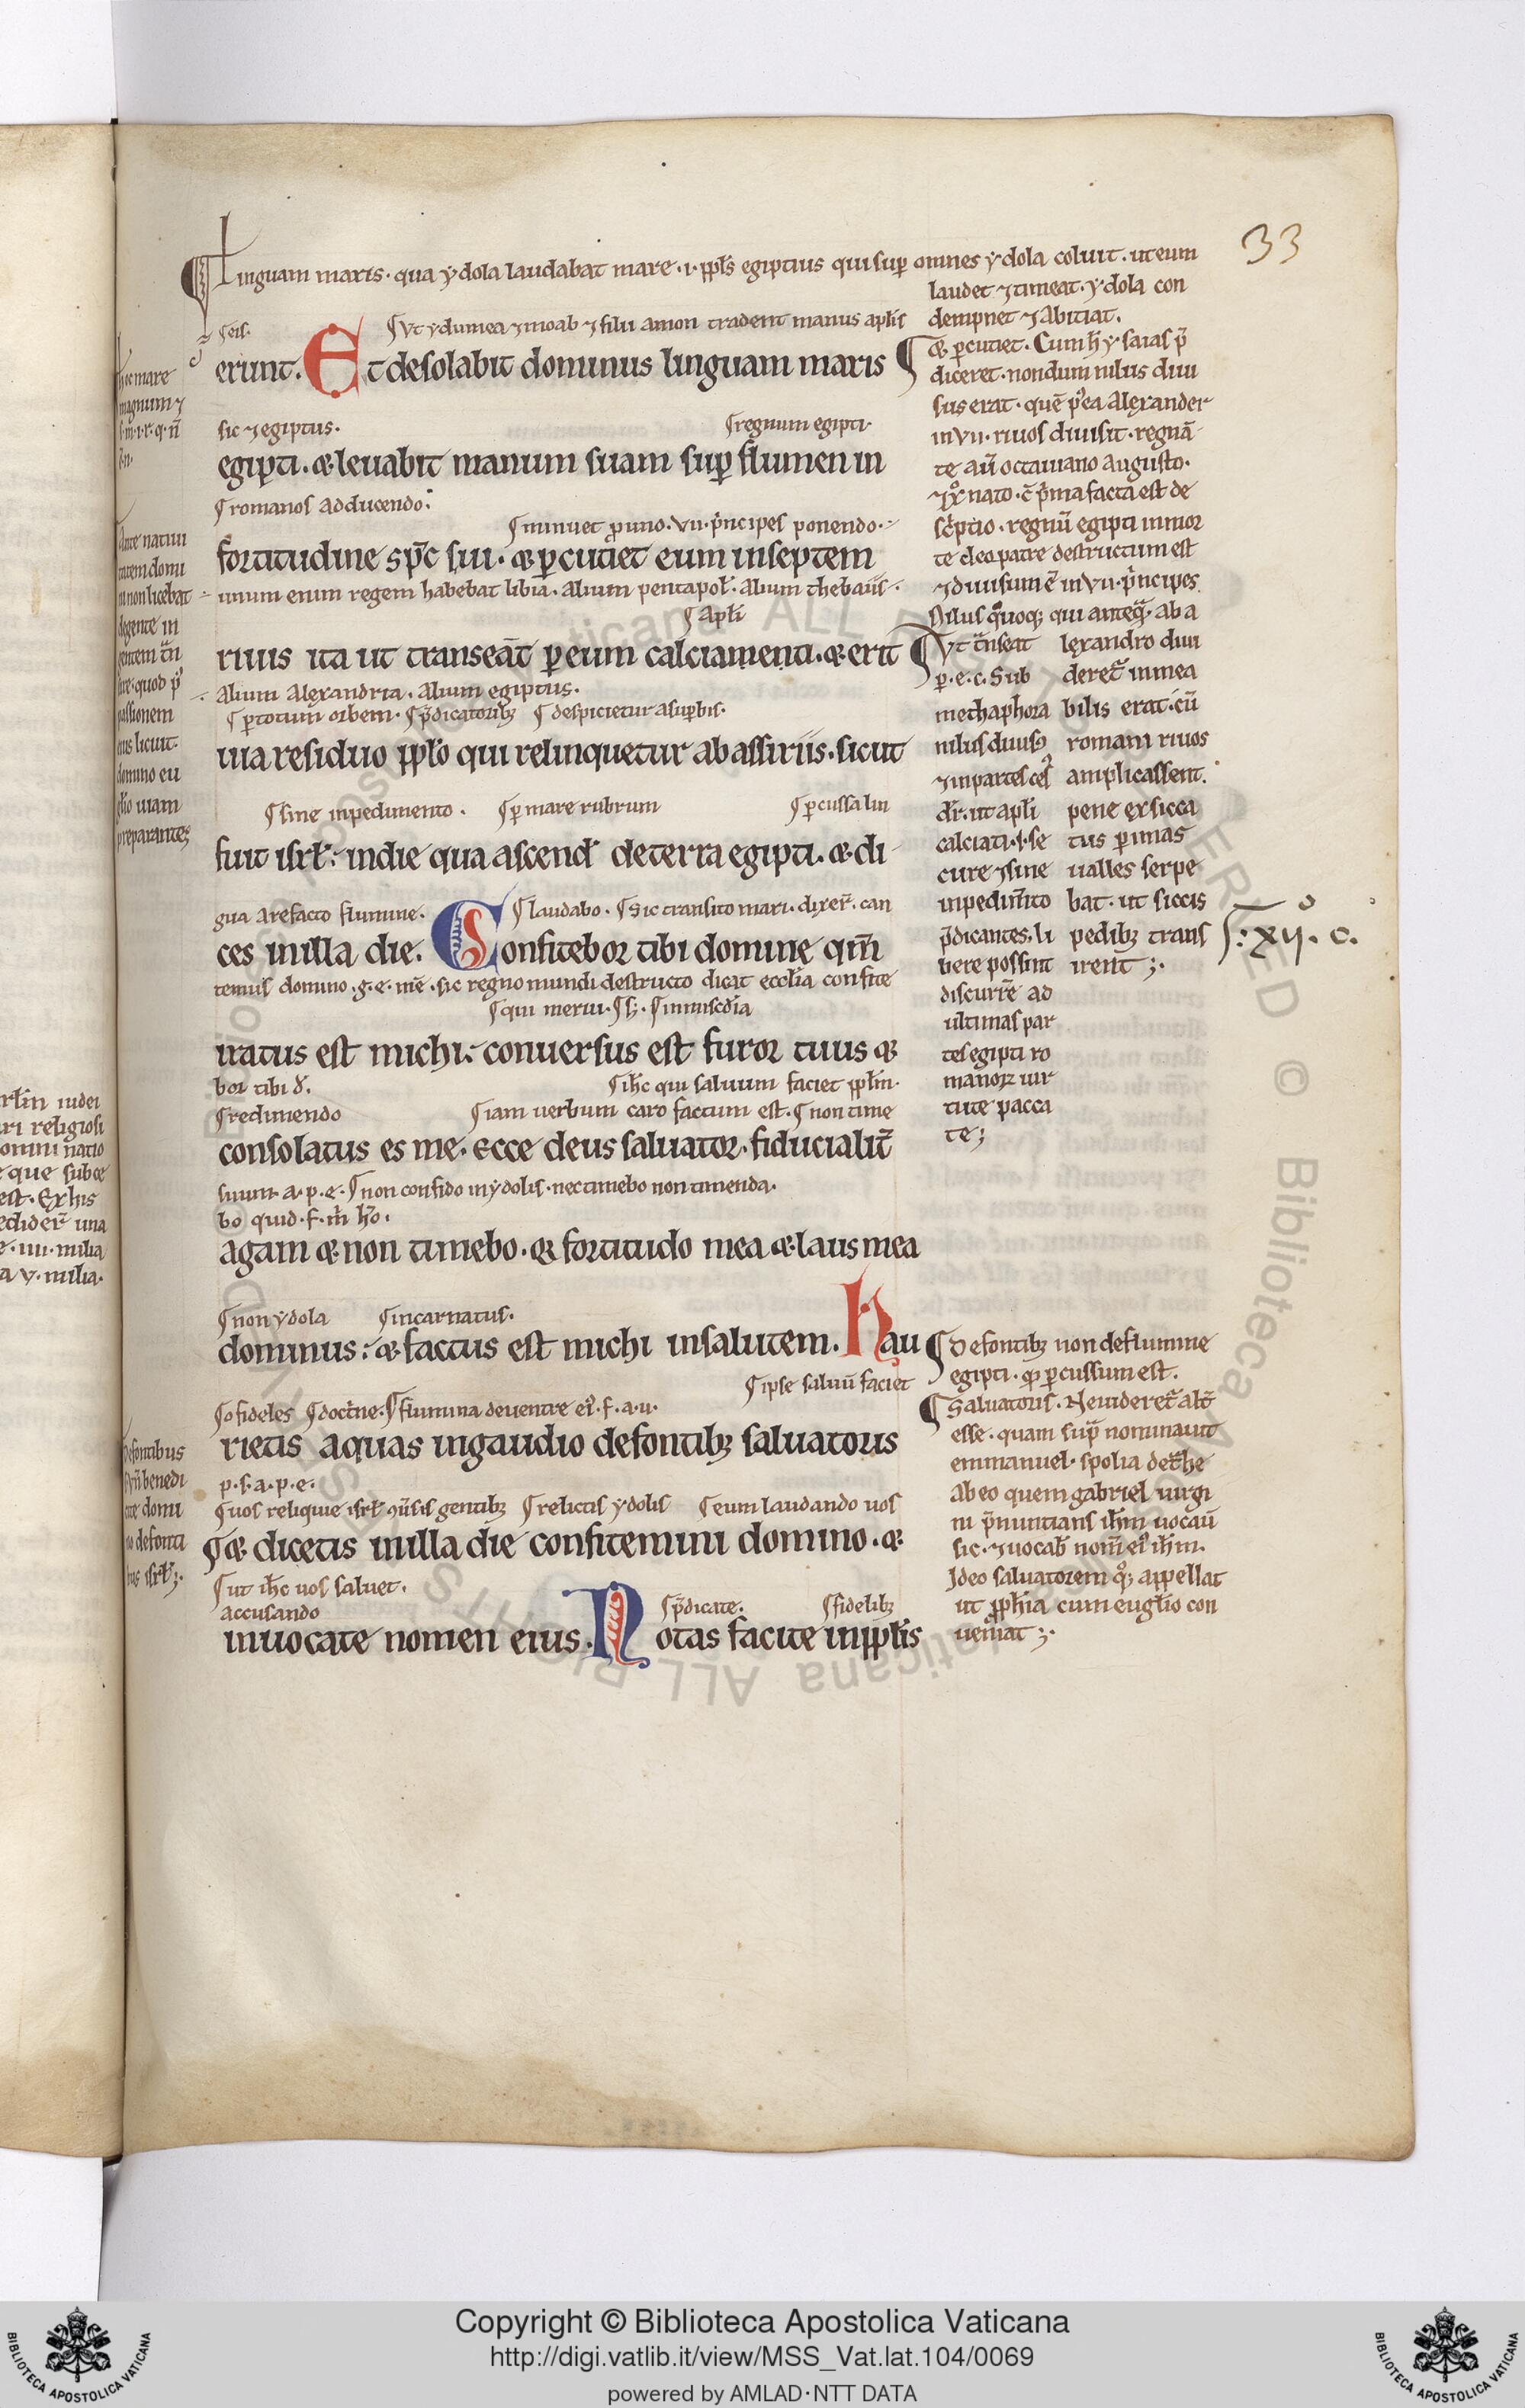 33
Linguam maris. qua ydola laudabat mare .i. ppłs egiptius qui sup̱ omnes ydola coluit. ut eum
laudet ⁊ timeat. ydola con
dempnet ⁊ abitiat.
Vt ydumea ⁊ moab ⁊ filii amon tradent manus apłis
erunt. Et desolabit dominus linguam maris
sic ⁊ egiptus. regnum egipti.
egipti. & levabit manum suam sup̱ flumen in
romanos adducendo.
minuet ꝓ uno .vii. p̄ncipes ponendo.
fortitudine sp̄c sui. & ꝑcutiet eum in septem
unum enim regem habebat libia. alium pentapoł. alium thebaiis.
apłi
rivis ita ut transeāt ꝑ eum calciamenti. & erit
alium alexandria. alium egiptus.
ꝑ totum orbem. p̄dicatoribꝫ despicietur a suꝑbis.
via residuo pplo qui relinquetur ab assiriis. sicut
sine inpedimento. ꝑ mare rubrum ꝑcussa lin
fuit isrł: in die qua ascend̄ de terra egipti. & di
gua arefacto flumine. laudabo. Sic transito mari. dixer̄. can
ces in illa die. Confitebor tibi domine qm̄
temus domino .g.e.m̄e. sic regno mundi destructo dicat eccłia confite
qui merui.
iratus est michi: conversus est furor tuus &
bor tibi d̄. ih̄c qui salvum faciet ppłm.
redimendo iam verbum caro factum est. non time
consolatus es me. Ecce deus salvator. fiducialit̄
suum. a.p.e. non confido in ydolis. nec timebo non timenda.
bo quid .f. m̄ ho.
agam & non timebo. Q fortitudo mea & laus mea
non ydola incarnatus.
dominus: & factus est michi in salutem. Hau
ipse salvū faciet
o fideles doct̄ne. flumina de ventre ei .f.a.v.
rietis aquas in gaudio de fontibꝫ salvatoris
p.s.a.p.e.
vos reliquie isrł ꝯv̄sis gentibꝫ relictis ydolis eum laudando vos
& dicetis in illa die confitemini domino. &
ut ih̄c vos salvet.
accusando p̄dicate. fidelibꝫ
invocate nomen eius. Notas facite in ppłis
& ꝑcutiet. Cum h̄ ysaias p̄
diceret. nondum nilus divi
sus erat. quē p̱ea alexander
in vii. rivos divisit. regnā
te aū octaviano augusto.
⁊ xp̄o nato. c̄ p̄ma facta est de
sc̄ptio. regnū egipti in mor
te cleopatre destructum est
⁊ divisum ē in vii. p̄ncipes.
Nilus q̄oqꝫ qui anteq̄. ab a
lexandro divi
deret̄ inmea
bilis erat. cū
romani rivos
amplicassent.
pene exsicca
tus ꝑ imas
valles serpe
bat. ut siccis
pedibꝫ trans
irent;
Vt t̄nseat
ꝑ.e.c. Sub
methaphora
nilus divis̾
⁊ in partes
dr̄. ut apłi
calciati .i. se
cure ⁊ sine
inpedim̄to
p̄dicantes. li
bere possint
discurre ad
ultimas par
tes egipti ro
manoꝝ vir
tute pacca
te;
xij. c.
De fontibꝫ non de flumine
egipti. ꝙ ꝑcussum est.
Salvatoris. Ne videret̄ alt̄
esse. quam sup̄ nominavit
emmanuel. spolia det̄he
ab eo quem gabriel virgi
ni p̄nuntians ih̄m vocavit
sic. ⁊ vocab̄ nom̄ ei ih̄m.
Ideo salvatorem qꝫ appellat
ut ꝓphia cum euglio con
veniat;
hic mare
magnum ⁊
Ante nativi
tatem domi
ni non licebat
degente in
gentem t̄n
sire. quod p̄
passionem
eius licuit.
domino eu
viam
preparantes
De fontibus
benedi
cite domi
no de fonti
bus isrł;
iudei
religiosi
omni natio
que subce
est. Ex his
una
.iiii. milia
v. milia.
Copyright © Biblioteca Apostolica Vaticana
http://digi.vatlib.it/view/MSS_Vat.lat.104/0069
powered by AMLAD·NTT DATA
BIBLIOTECA APOSTOLICA VATICANA
BIBLIOTECA APOSTOLICA VATICANA